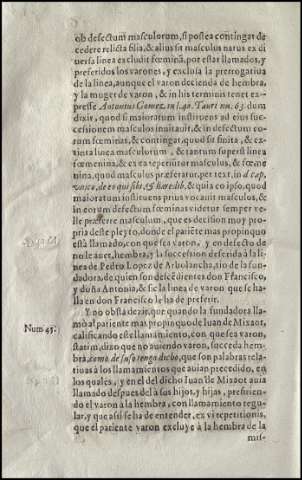 ob defectum masculorum, si postea contingat de
cedere relicta filia, & alius sit masculus natus ex di
uersa linea excludit fœmina, por estar llamados, y
preferidos los varones, y exclusa la prerrogatiua
de la linea, aunque el varon decienda de hembra,
y la muger de varon, & in his terminis tener ex-
presse Antonius Gomez. in l. 40. Tauri nu. 63. dum
dixit, quod si maioratum instituens ad eius suc-
cessionem masculos inuitauit, & in defectum eo-
rum fœminas, & contingat, quod sit finita, & ex-
tincta linea masculorum, & tantum superest linea
fœmenina, & ex ea reperiūtur masculus, & fœme
nina, quod masculus præfertur, per text. in d. cap.
1. an de eo qui sibi, & hæredib. & quia eo ipso, quod
maioratum instituens prius vocauit masculos, &
in eorum defectum fœminas videtur semper vel-
le præferre masculum, que es decision muy pro-
pria deste pleyto, donde el pariēte mas propinquo
està llamado, con que sea varon, y en defecto de
no le auer, hembra, y la succession deferida à la li-
nea de Pedro Lopez de Arbolancha, tio de la fun-
dadora, de quien son decēdientes don Francisco,
y doña Antonia, & sic la linea de varon que se ha-
lla en don Francisco le ha de preferir.
Y no obsta dezir, que quando la fundadora lla-
Num 45.
mò al pariente mas propinquo de Iuan de Misaot,
calificando este llamamiento, con que sea varon,
statim, dizo que no auiendo varon, succeda hem-
bra, como de suso tengo dicho, que son palabras rela-
tiuas à los llamamientos que auian precedido, en
los quales, y en el del dicho Iuan de Misaot auia
llamado despues del à sus hijos, y hijas, prefirien-
do el varon à la hembra, con llamamiento regu-
lar, y que assi se ha de entender, ex vi repetitionis,
que el pariente varon excluye à la hembra de la
mis-